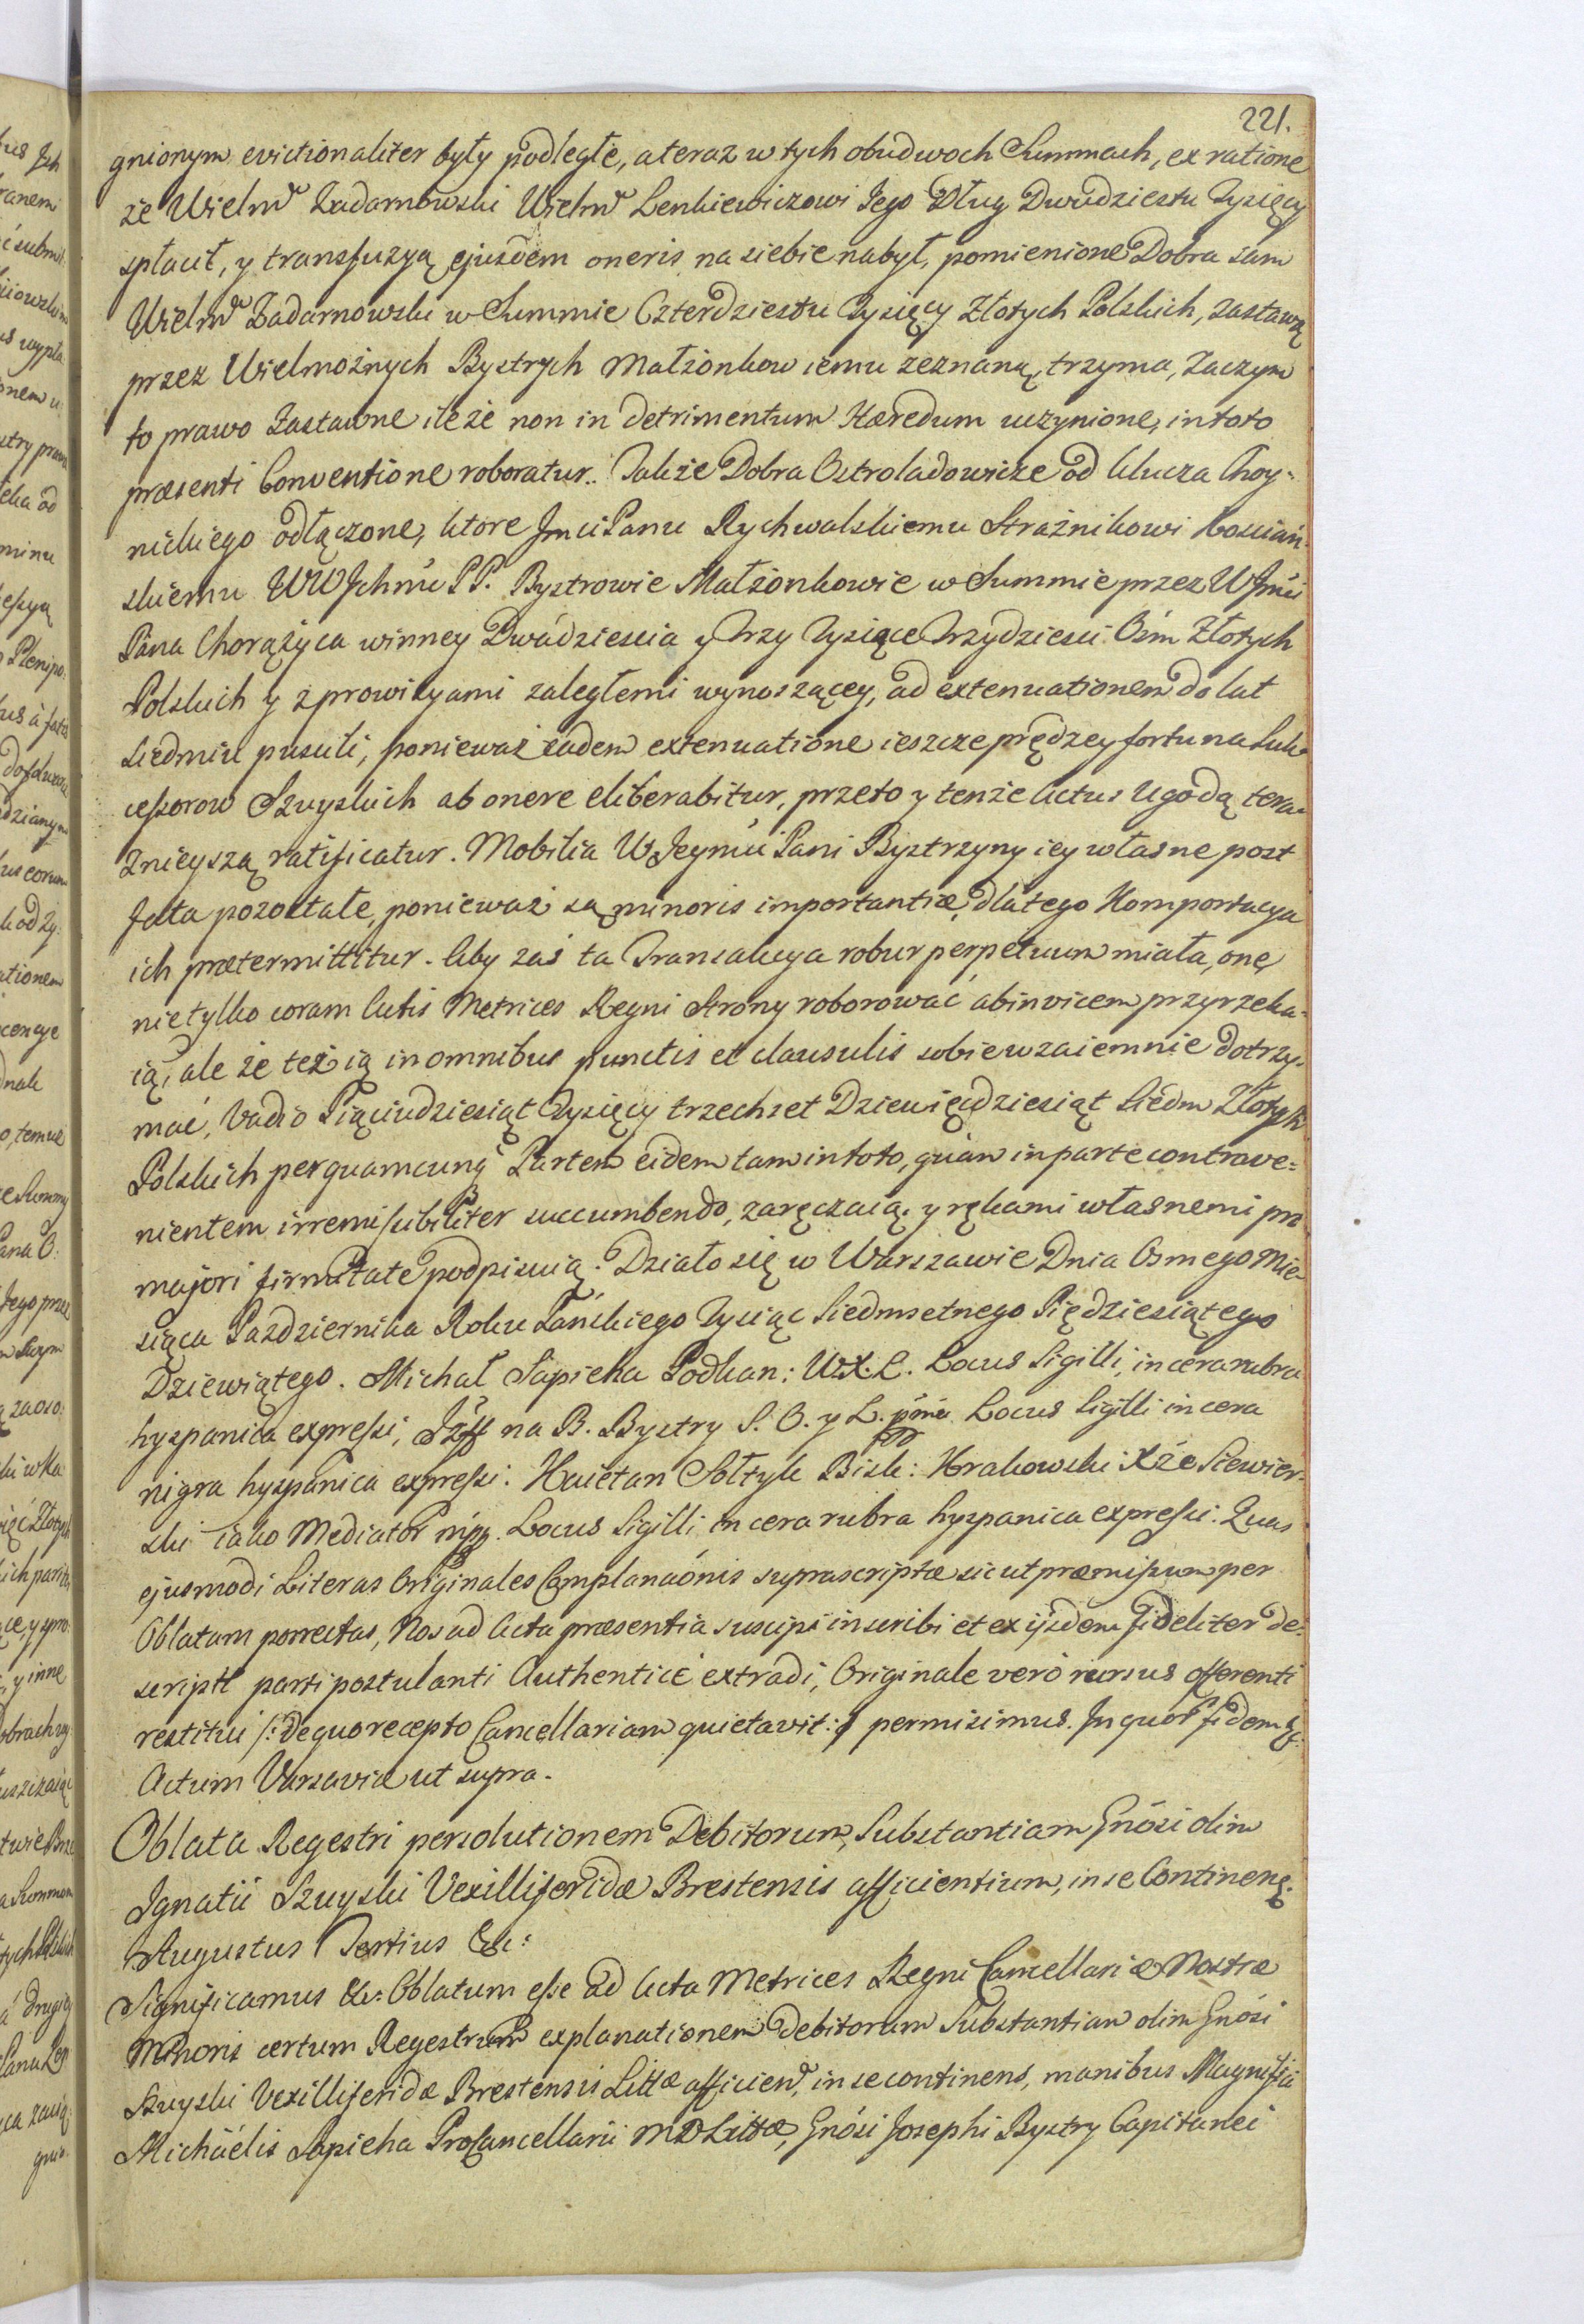 221.
gnionym evictionaliter były podległe, a teraz w tych obudwoch Summach, ex ratione
że Wielm̃ Zadarnowski Wielm̃ Lenkiewiczowi Jego Dług Dwudziestu Tysięcy
spłacił, y transfuzyą ejusdem oneris na siebie nabył, pomienione Dobra sam
Wielm̃ Zadarnowski w Summie Czterdziestu Tysięcy Złotych Polskich, zastawą
przez Wielmożnych Bystrych Małżonkow iemu zeznaną, trzyma, zaczym
to prawo Zastawne ile że non in detrimentum Hæredum uczynione, in toto
præsenti Conventione roboratur. Także Dobra Ostroladowicze od klucza Choy-
nickiego odłączone, ktore Jmci Panu Rychwalskiemu Strażnikowi Kościań-
skiemu WWJchmć PP. Bystrowie Małżonkowie w Summie przez WJmći
Pana Chorążyca winney Dwadziescia y Trzy Tysiące Trzydziesci Ośm Złotych
Polskich y z prowizyami zaległemi wynoszącey, ad extenuationem do lat
siedmiu puscili, ponieważ eadem extenuatione ieszcze prędzey fortuna Suk-
cessorow Szuyskich ab onere eliberabitur, przeto y tenże Actus Ugodą tera-
znieyszą ratificatur. Mobilia WJeymći Pani Bystrzyny iey własne post
fata pozostałe, ponieważ są minoris importantiæ, dlatego Komportacya
ich prætermittitur. Aby zaś ta Transakcya robur perpetuum miała, onę
nietylko coram Actis Metrices Regni Strony roborować ab invicem przyrzeka-
ią, ale że też ią in omnibus punctis et clausulis sobie wzaiemnie dotrzy-
mać, Vadio Pięciudziesiąt Tysięcy trzechset Dziewięćdziesiąt Siedm Złotych
Polskich per quamcunq̃ Partem eidem tam in toto, quàm in parte contrave=
nientem irremissibiliter succumbendo, zaręczaią. y rękami własnemi pro
majori firmitate podpisuią. Działo się w Warszawie Dnia Osmego Mie-
siąca Pazdziernika Roku Pańskiego Tysiąc Siedmsetnego Pięćdziesiątego
Dziewiątego. Michał Sapieha Podkan: W.X.L. Locus Sigilli, in cera rubra
hyspanica expressi, Józeff na B. Bystry S. O. y L. Locus Sigilli in cera
nigra hyspanica expressi. Kaietan Sołtyk Bisk: Krakowski Xże Siewier-
ski iako Mediator mpp. Locus Sigilli in cera rubra hyspanica expressi. Quas
ejusmodi Literas Originales Complanaõnis suprascriptæ sicut præmissum per
Oblatam porrectas, Nos ad Acta præsentia suscipi inscribi et ex ijsdem fideliter de=
scripti parti postulanti Authenticè extradi, Originale verò rursus offerenti
restitui /: de quo recepto Cancellariam quietavit :/ permisimus. In quor̃ fidem &c.
Actum Varsaviæ ut supra.
Oblata Regestri persolutionem Debitorum, Substantiam Gnõsi olim
Ignatii Szuyski Vexilliferidæ Brestensis afficientium, in se Continenš.
Augustus Tertius &c:
Significamus &c: Oblatum esse ad Acta Metrices Regni Cancellariæ Nostræ
Minoris certum Regestrum explanationem Debitorum Substantiam olim Gnõsi
Szuyski Vexilliferidæ Brestensis Littæ afficieñ, in se continens, manibus Magnifici
Michäélis Sapieha ProCancellarii MDLittæ, Gnõsi Josephi Bystry Capitanei